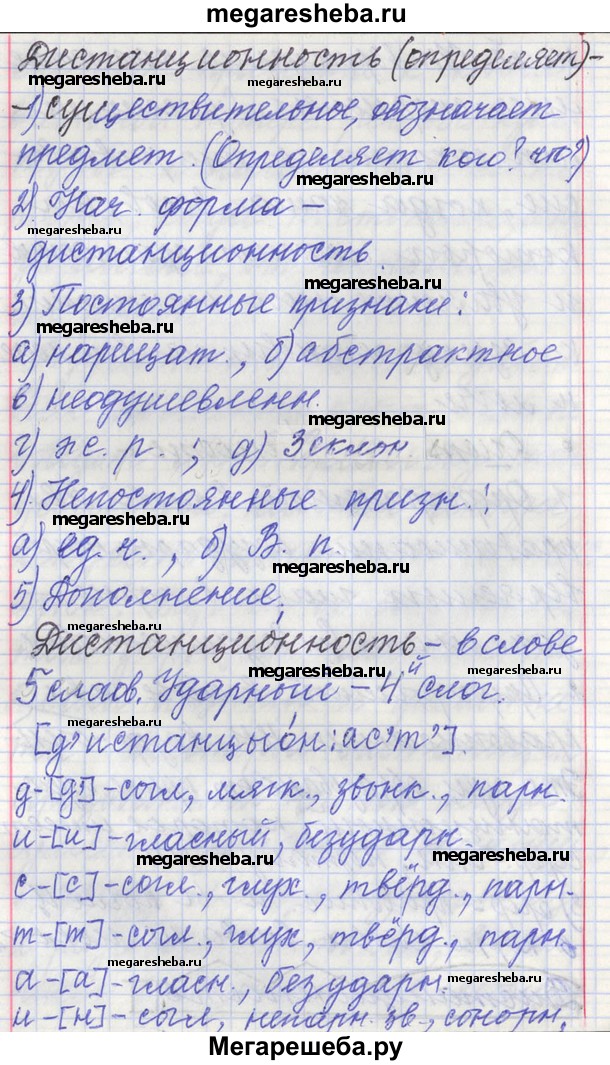 megaresheba.ru
Дистанционность (определяет) –
megaresheba.ru
megaresheba.ru
– 1) существительное, обозначает
предмет. (Определяет кого? что?)
megaresheba.ru
2). Нач. форма –
megaresheba.ru
дистанционность.
megaresheba.ru
3) Постоянные признаки:
megaresheba.ru
а) нарицат., б) абстрактное
в) неодушевленн.
megaresheba.ru
г) ж. р. ; д) 3 склон.
4). Непостоянные призн.:
megaresheba.ru
а) ед. ч., б) В. п.
megaresheba.ru
5) Дополнение.
Дистанцио́нность – в слове
megaresheba.ru
megaresheba.ru
5 слогов. Ударный – 4й слог.
megaresheba.ru
[д’истанцыо́н:ас’т’].
megaresheba.ru
д-[д’]-согл, мягк., звонк., парн.
и-[и]-гласный, безударн.
megaresheba.ru
megaresheba.ru
с-[с]-согл., глух., твёрд., парн.
т-[т]-согл., глух, твёрд., парн.
megaresheba.ru
а-[а]-гласн., безударн.
megaresheba.ru
н-[н]-согл, непарн. зв., сонорн,
Мегарешеба.ру